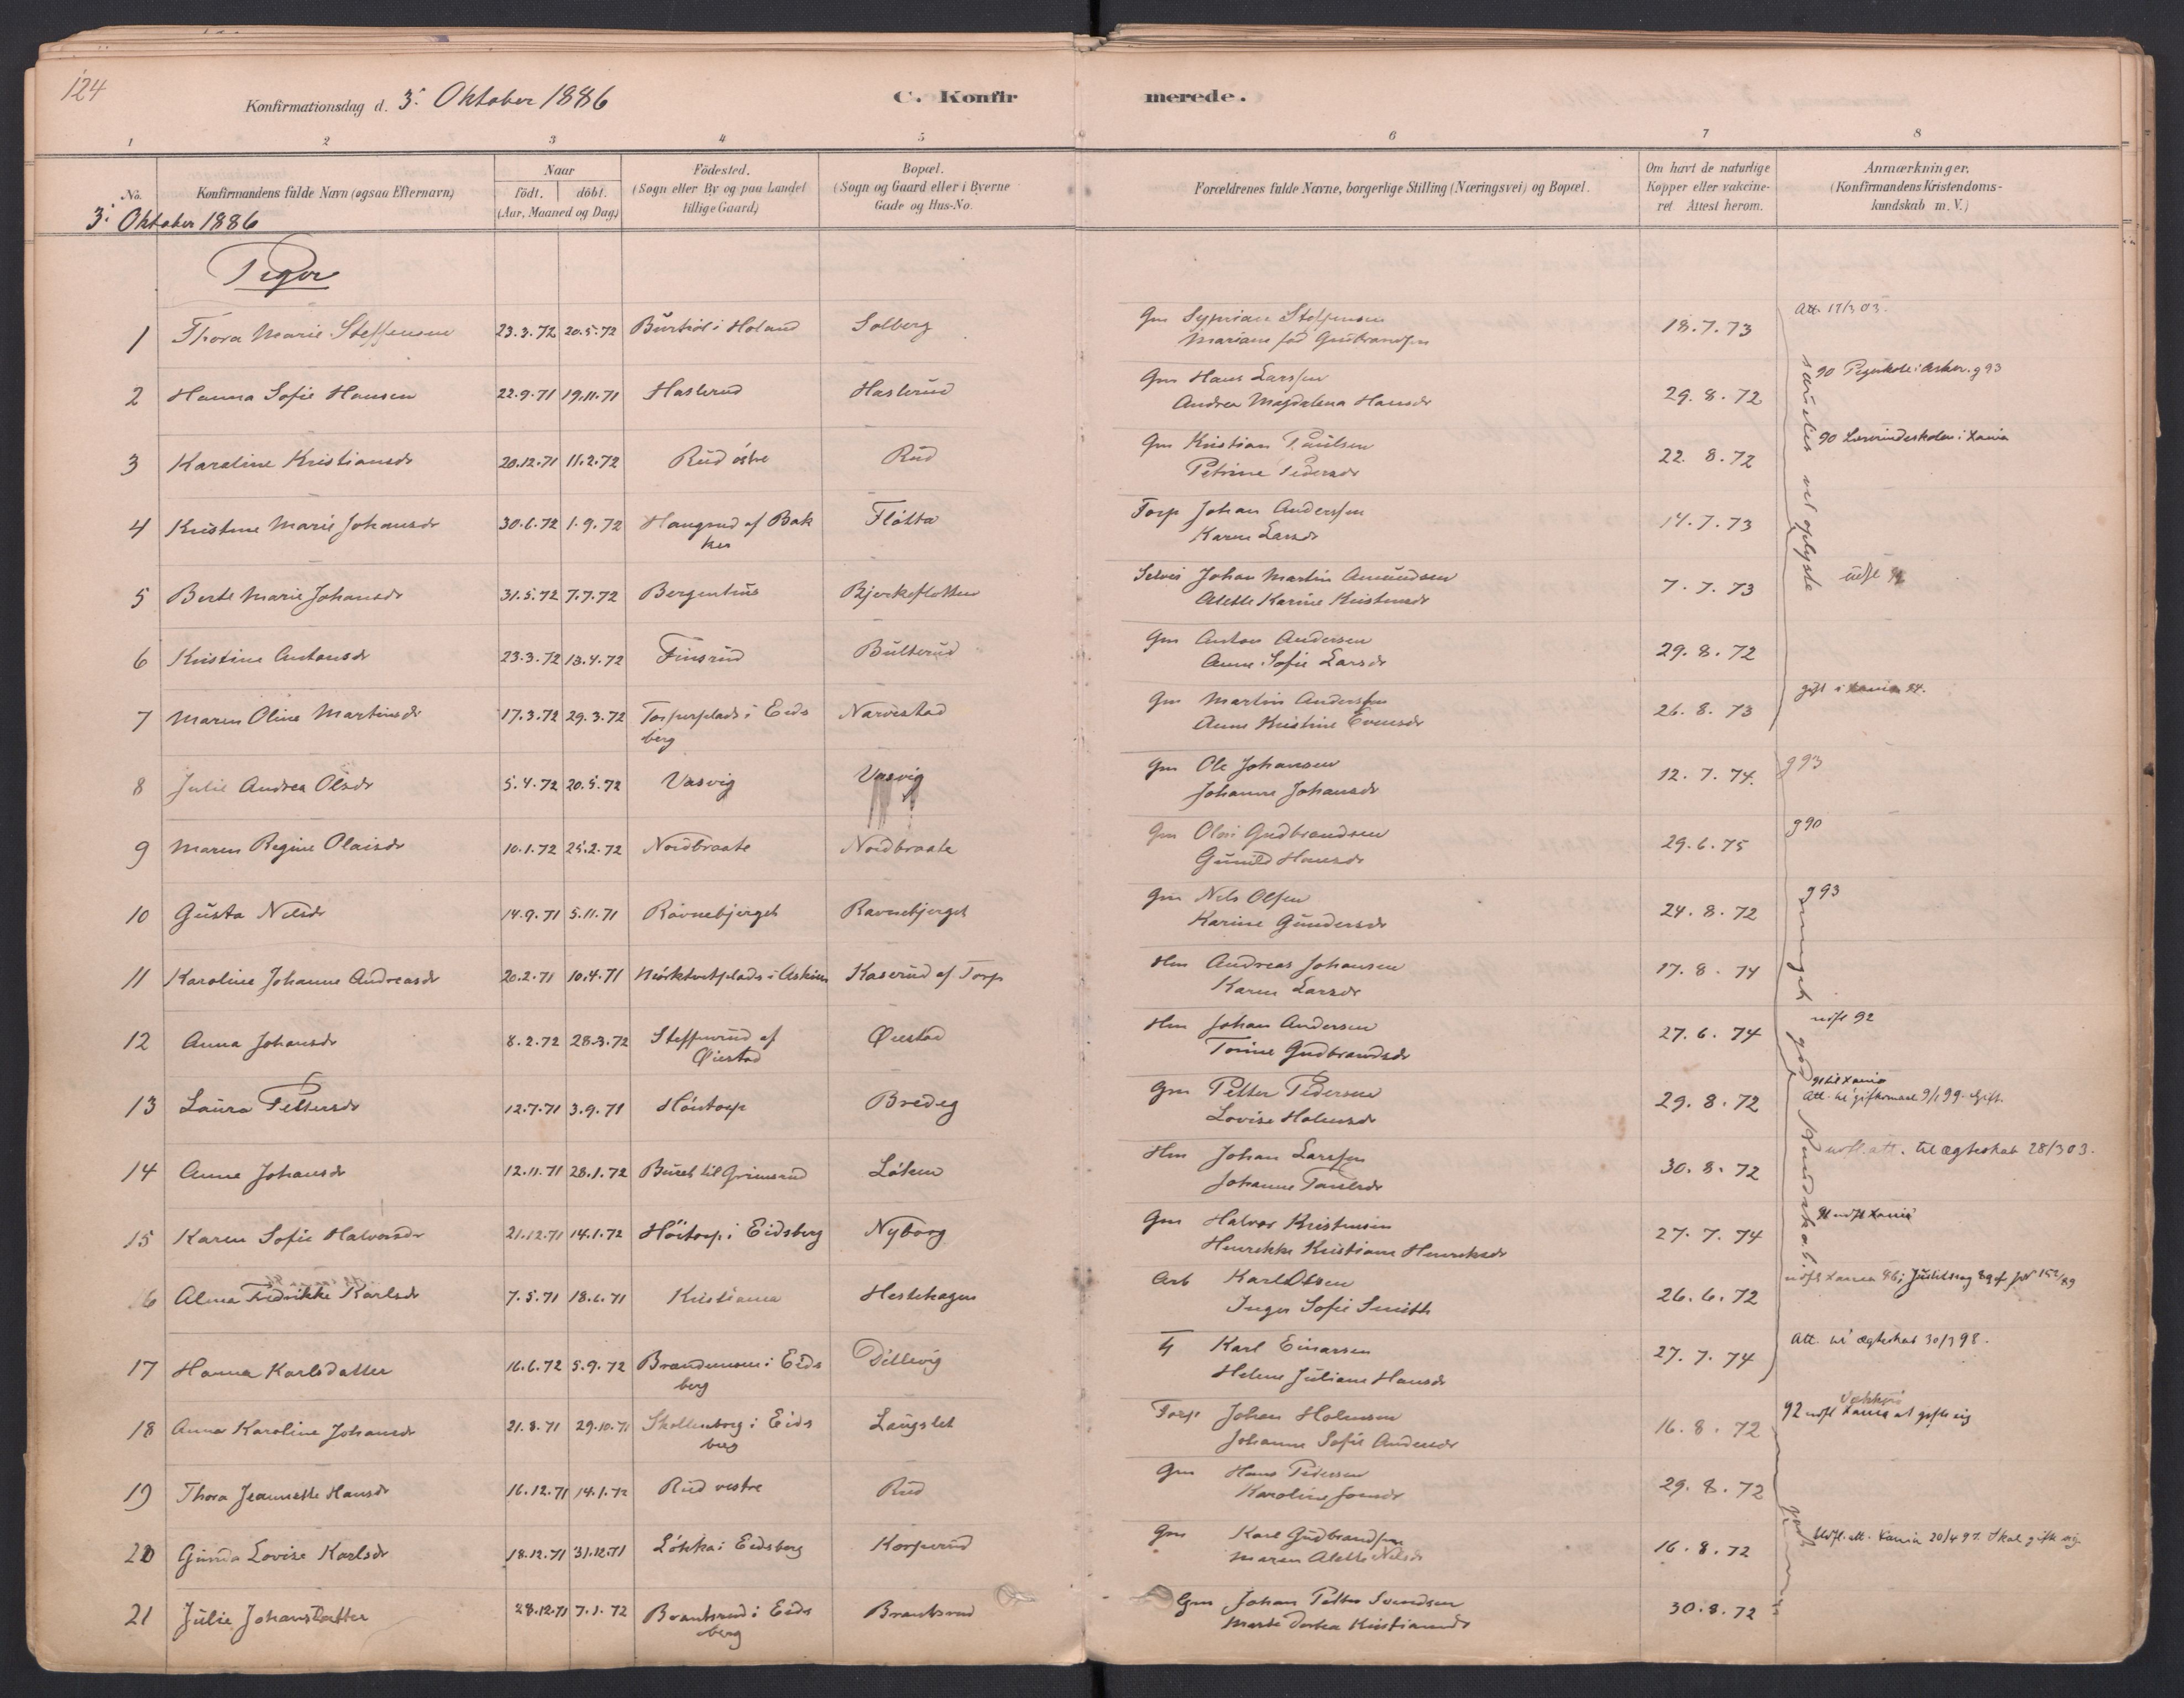 124
Konfirmationsdag d. 3. Oktober 1886
C. Konfirmerede.
1 2 3 4 5 6 7 8
No.
Konfirmandens fulde Navn (ogsaa Efternavn)
Naar
födt. döbt.
(Aar, Maaned og Dag)
Födested.
(Sogn eller By og paa Landet
tillige Gaard)
Bopæl.
(Sogn og Gaard eller i Byerne
Gade og Hus-No.
Forældrenes fulde Navne, borgerlige Stilling (Næringsvei) og Bopæl.
Om havt de naturlige
Kopper eller vakcine-
ret. Attest herom.
Anmærkninger.
(Konfirmandens Kristendoms-
kundskab m. V.)
3. Oktober 1886
Piger
1 Thora Marie Steffensen 23.3.72 20.5.72 i Høland Solberg Gm Steffensen 18.7.73 Att. 17/3 03.
Mariane fød Gudbrandsen
2 Hanna Sofie Hansen 22.9.71 19.11.71 Haslerud Haslerud Gm Hans Larssen 29.8.72 90 Pigeskole i Asker. g 93
Andrea Magdalena Hansdr
3 Karoline Kristiansdr 20.12.71 11.2.72 Rud østre Rud Gm Kristian Paulsen 22.8.72 90 Lærerindeskolen i Xania
Petrine Pedersdr
4 Kristine Marie Johansdr 30.6.72 1.9.72 Haugrud af Bak Fløtta Torp Johan Anderssen 14.7.73
ker Karen Larsdr
5 Berte Marie Johansdr 31.5.72 7.7.72 Bjerkeflotten Johan Martin Amundsen 7.7.73
Alette Karine Kristensdr
6 Kristine Antonsdr 23.3.72 13.4.72 Finsrud Bulterud Gm Anton Andersen 29.8.72
Anne Sofie Larsdr
7 Maren Oline Martinsdr 17.3.72 29.3.72 Torperplads i Eids Narvestad Gm Martin Anderssen 26.8.73 gift i Xania 94.
berg Anne Kristine Evensdr
8 Julie Andrea Olsdr 5.4.72 20.5.72 Vasvig Vasvig Gm Ole Johansen 12.7.74. g 93
Johanne Johansdr
9 Maren Regine Olaisdr 10.1.72 25.2.72 Nordbraate Nordbraate Gm Olai Gudbrandsen 29.6.75 g 90
Gunild Hansdr
10 Gusta Nilsdr 14.9.71 5.11.71 Ravnebjerget Ravnebjerget Gm Nils Olsen 24.8.72 g 93
Karine Gundersdr
11 Karoline Johanne Andreasdr 20.2.71 10.4.71 Mörktvetplads i Askim Kaserud af Torp Hm Andreas Johansen 17.8.74
Karen Larsdr
12 Anna Johansdr 8.2.72 28.3.72 Steffenrud af Øiestad Hm Johan Andersen 27.6.74 udfl 92
Øiestad Torine Gudbrandsdr
13 Laura Pettersdr 12.7.71 3.9.71 Høitorp Bredeg Gm Petter Pedersen 29.8.72 91 til Xania
Lovise Holmsdr
14 Anne Johansdr 12.11.71 28.1.72 Buret til Grimsrud Løken Hm Johan Larssen 30.8.72 udfl. att. til ægteskab 28/3 03.
Johanne Paulsdr
15 Karen Sofie Halvorsdr 21.12.71 14.1.72 Höitorp i Eidsberg Nyborg Gm Halvor Kristensen 27.7.74 91 udfl Xania
Henrikke Kristiane Henriksdr
16 Alma Fredrikke Karlsdr 7.5.71 18.6.71 Kristiania Hestehagen Arb Karl Olsen 26.6.72
Inger Sofie Smith
17 Hanna Karlsdatter 16.6.72 5.9.72 i Eids Dillevig Karl Einarsen 27.7.74 Att. til ægteskab 30/3 98.
berg Helene Juliane Hansdr
18 Anna Karoline Johansdr 21.8.71 29.10.71 Skollenborg i Eids Langslet Torp Johan Holmsen 16.8.72 92 udfl Xania at gifte sig
berg Johanne Sofie Andersdr
19 Thora Jeannette Hansdr 16.12.71 14.1.72 Rud vestre Rud Gm Hans Pedersen 29.8.72
Karoline Jonsdr
20 Gunda Lovise Karlsdr 18.12.71 31.12.71 Løkka i Eidsberg Korperud Gm Karl Gudbrandsen 16.8.72 Udfl. att. Xania 20/4 97. Skal gifte sig
Maren Alette Nilsdr
21 Julie Johansdatter 28.12.71 7.1.72 Brantsrud i Eids Brantsrud Gm Johan Petter Svendsen 30.8.72
berg Marte Dortea Kristiansdr
særdeles vel oplyste
meget god Kundskab
god